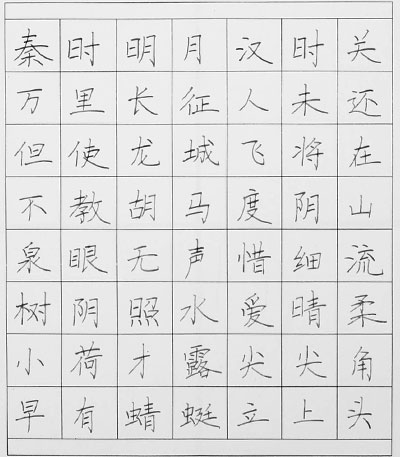 秦时明月汉时关
万里长征人未还
但使龙城飞将在
不教胡马度阴山
泉眼无声惜细流
树阴照水爱晴柔
小荷才露尖尖角
早有蜻蜓立上头